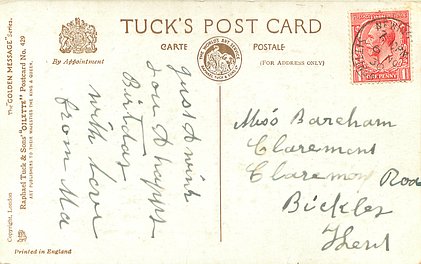 The "GOLDEN MESSAGE" Series.
Raphael Tuck & Sons' "OILETTE" Postcard No. 429
ART PUBLISHERS TO THEIR MAJESTIES THE KING & QUEEN.
Copyright, London
Printed in England
TUCK'S POST CARD
CARTE POSTALE
(FOR ADDRESS ONLY)
By Appointment
THE WORLD'S ART SERVICE
ONE PENNY
Just A wish
you A happy
Birtday
with Love
from Ma
Miss Bareham
Claremont
Claremont Road
Bickley
Kent